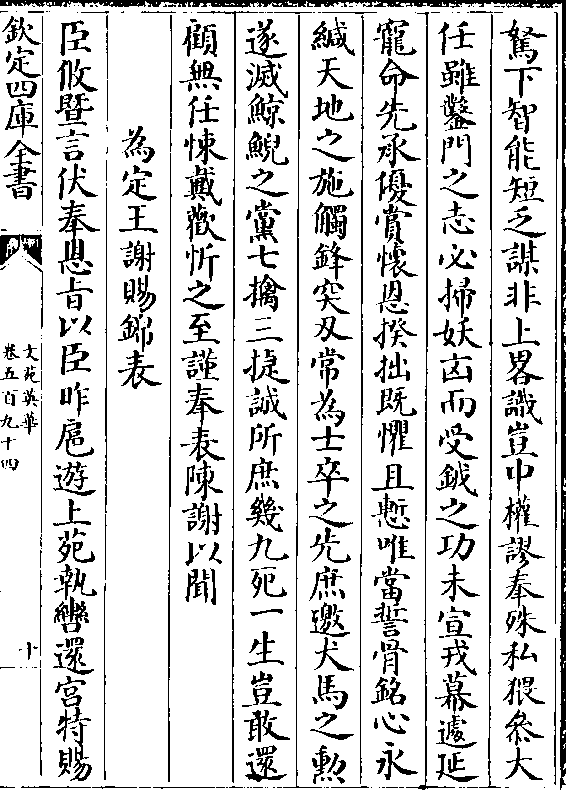 駑下智能短乏謀非上畧識豈中權謬奉殊私猥叅大
任雖鑿門之志必掃妖凶而受鉞之功未宣戎幕遽延
寵命先承優賞懷恩揆拙既懼且慙唯當誓骨銘心永
緘天地之施觸鋒突刄常為士卒之先庶邀犬馬之勲
遂滅鯨鯢之黨七擒三捷誠所庶幾九死一生豈敢還
顧無任悚戴歡忻之至謹奉表陳謝以聞
為定王謝賜錦表
臣攸暨言伏奉恩旨以臣昨扈遊上苑執轡還宮特賜
欽定四庫全書
文苑英華
卷五百九十四
十